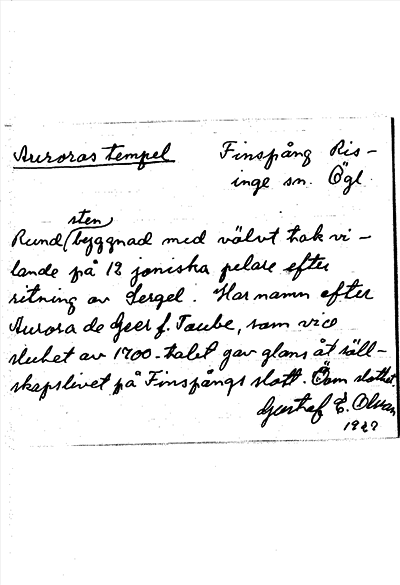 Auroras tempel Finspång Ris-
inge sn. Ögl.
sten
Rund byggnad med välvt tak vi-
lande på 12 joniska pelare efter
ritning av Sergel. Har namn efter
Aurora de Geer f. Taube, som vid
slutet av 1700-talet gav glans åt säll-
skapslivet på Finspångs slott. Öom slottet.
Gustaf E. Olsson
1929